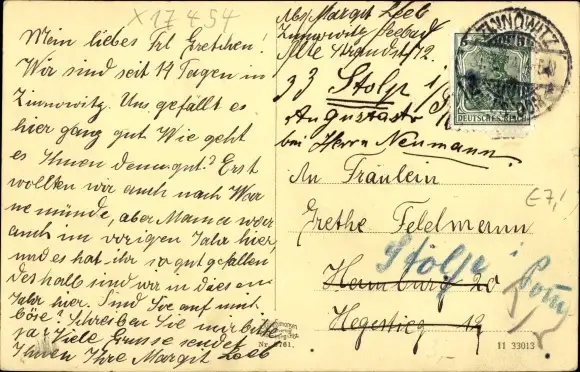 X 17454
Mein liebes Frl Gretchen!
Wir sind seit 14 Tagen in
Zinnowitz. Uns gefällt es
hier ganz gut Wie geht
es Ihnen denn gut? Erst
wollten wir auch nach War
nemünde, aber Mama war
auch im vorigen Jahr hier,
und es hat ihr so gut gefallen
Deshalb sind wir in diesem
Jahr hier. Sind Sie auf mich
böse? Schreiben Sie mir bitte
ja. Viele Grüsse sendet
Ihnen Ihre Margit Loeb
Abs Margit Loeb
Zinnowitz Seebad
Alte Strandstr 12.
33 Stolp i/
Augustastr
bei Herrn Neumann.
An Fräulein
Grethe Feldmann
Stolp i Pom
Hamburg 20
Hegestieg 12
ZINNOWITZ
DEUTSCHES REICH
E7,/
Nr. 6761.
11 33013